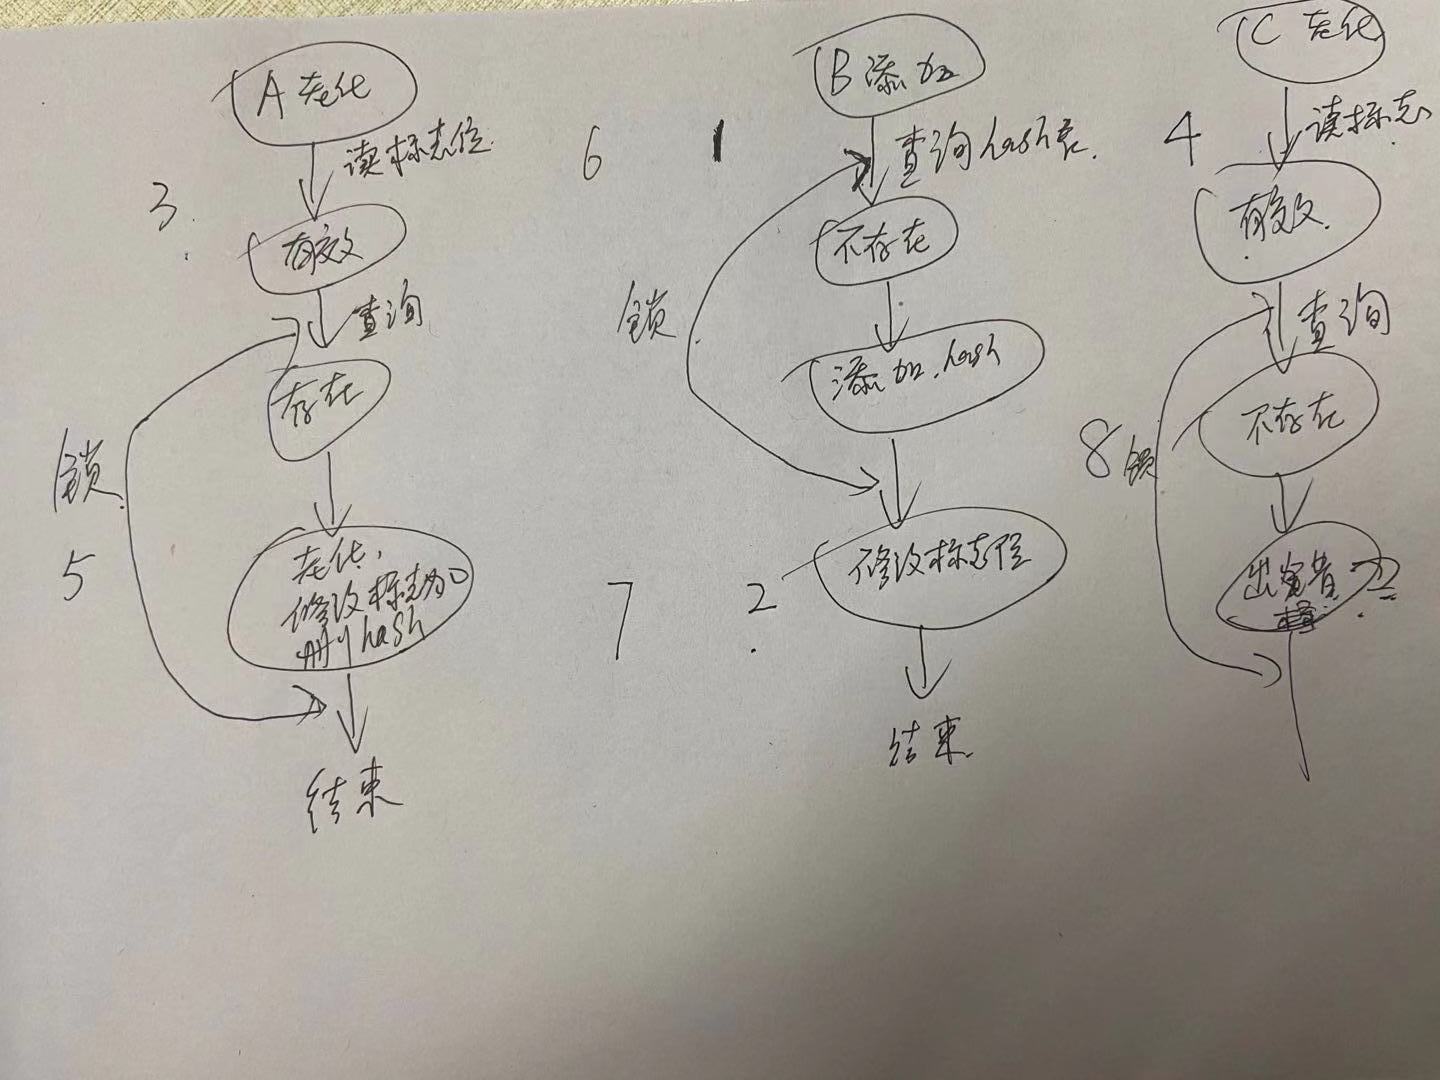 A 老化
读标志位
3.
有效
查询
存在
锁
5
老化,
修改标志为0
删 hash
结束
6
1
B 添加
查询hash表
不存在
锁
添加 hash
7
2
修改标志位
结束
C 老化
4
读标志
有效
查询
不存在
8
锁